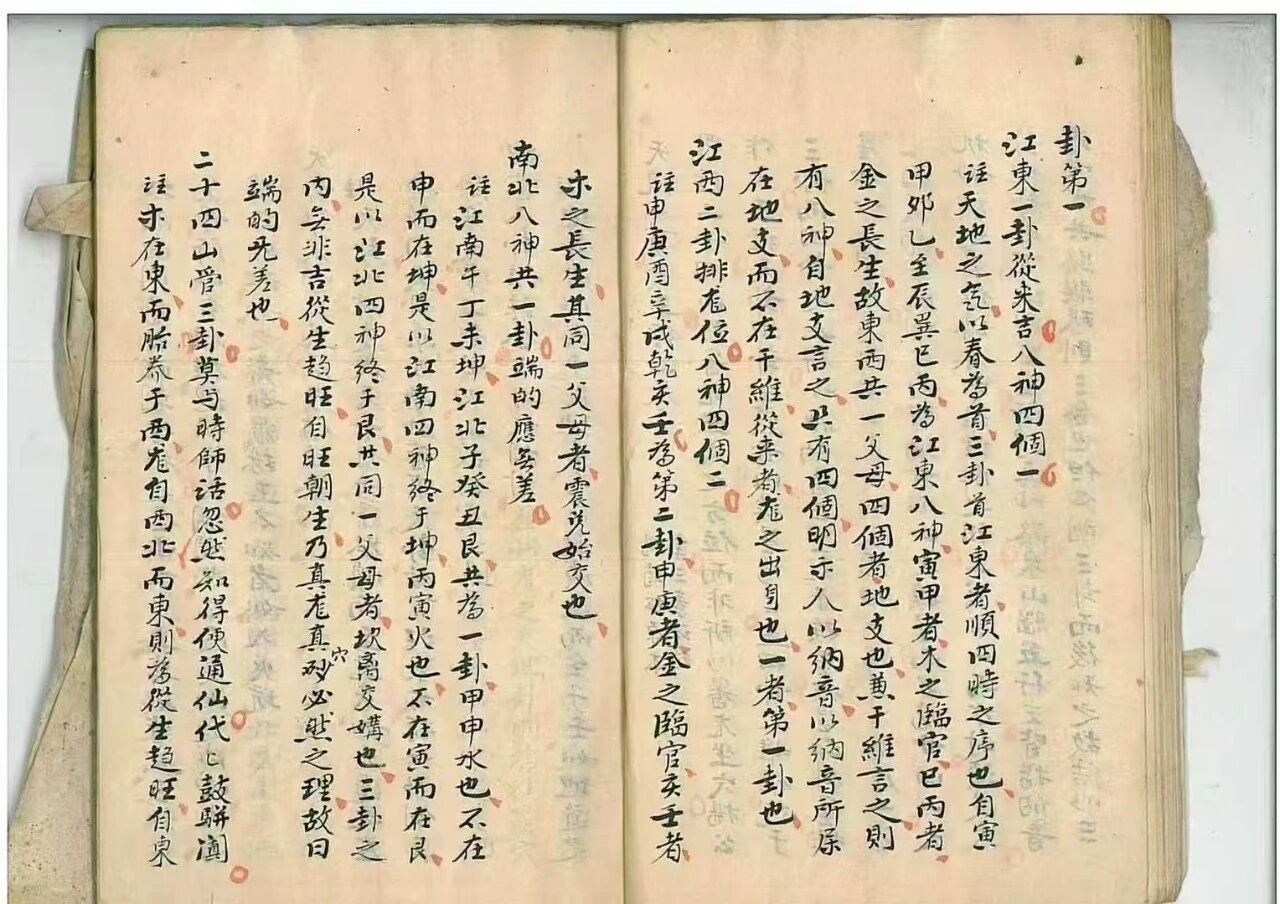 卦第一
江東一卦從来吉八神四個一
註天地之气以春為首三卦首江東者順四時之序也自寅
甲夘乙至辰巽巳丙為江東八神寅甲者木之臨官巳丙者
金之長生故東西共一父母四個者地支也兼干維言之則
有八神自地支言之只有四個明示人以納音以納音所属
在地支而不在干維從来者龙之出身也一者第一卦也
江西二卦排龙位八神四個二
註申庚酉辛戌乾亥壬為第二卦申庚者金之臨官亥壬者
木之長生其同一父母者震兑始交也
南北八神共一卦端的應無差
註江南午丁未坤江北子癸丑艮共為一卦甲申水也不在
申而在坤是以江南四神终于坤丙寅火也不在寅而在艮
是以江北四神终于艮共同一父母者坎离交媾也三卦之
内無非吉從生趋旺自旺朝生乃真龙真砂穴必然之理故曰
端的无差也
二十四山管三卦莫与時師话忽然知得便通仙代〻鼓駢滇
註木在東而胎养于西龙自西北而東則為從生趋旺自東